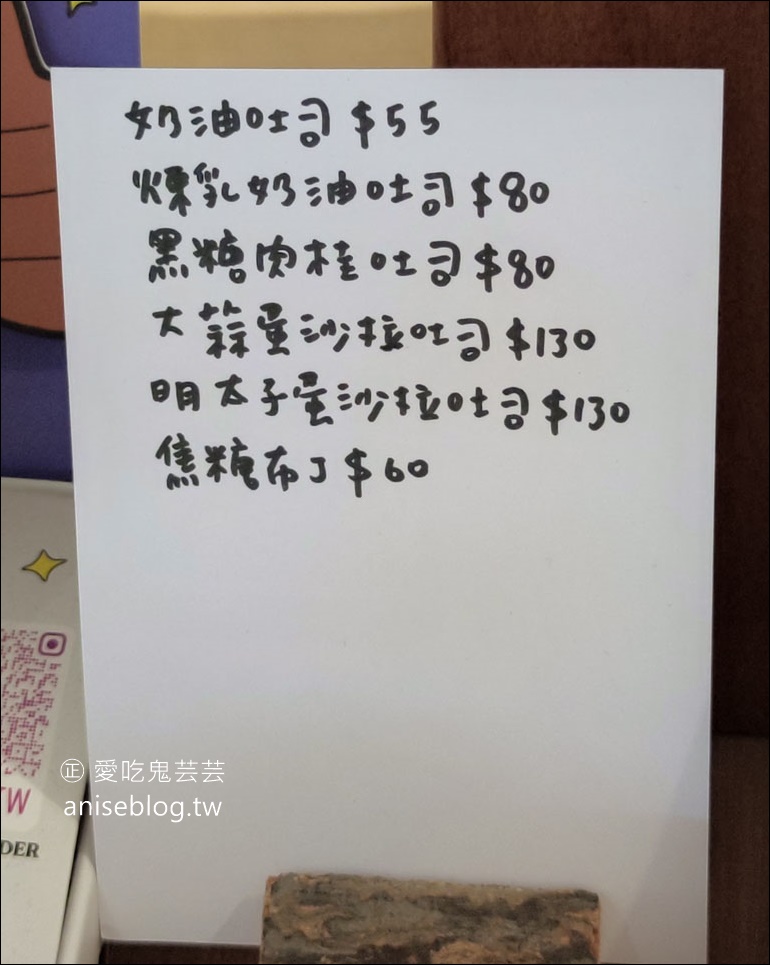 奶油吐司 $55
煉乳奶油吐司 $80
黑糖肉桂吐司 $80
大蒜蛋沙拉吐司 $130
明太子蛋沙拉吐司 $130
焦糖布丁 $60
正 愛吃鬼芸芸
aniseblog.tw
TW
DER